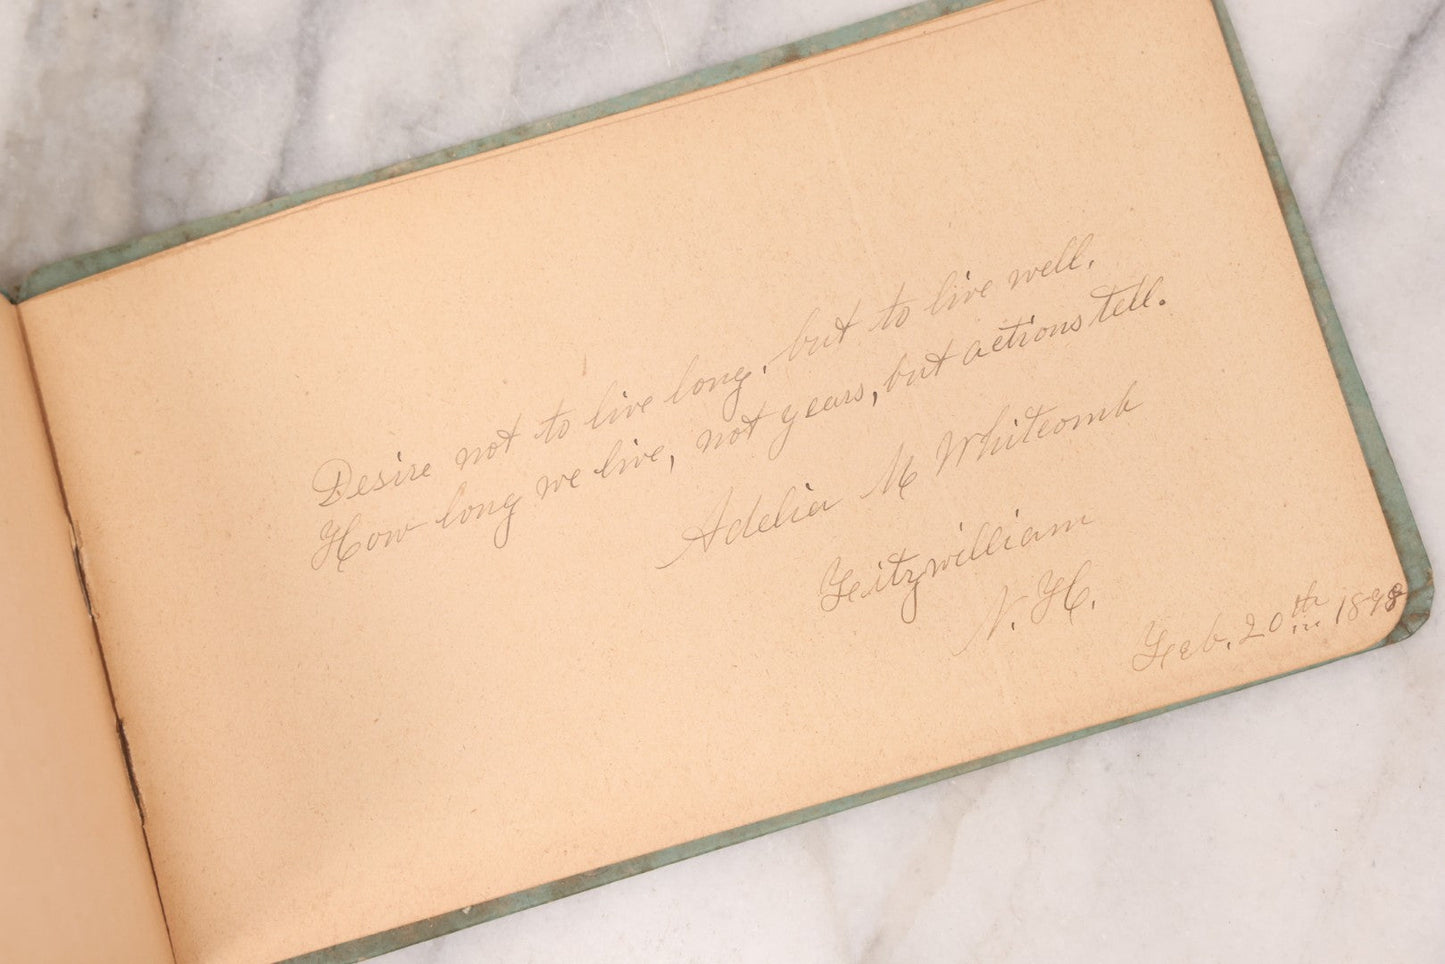 Desire not to live long, but to live well.
How long we live, not years, but actions tell.
Adelia M Whitcomb
Fitzwilliam
N. H.
Feb. 20th 1898